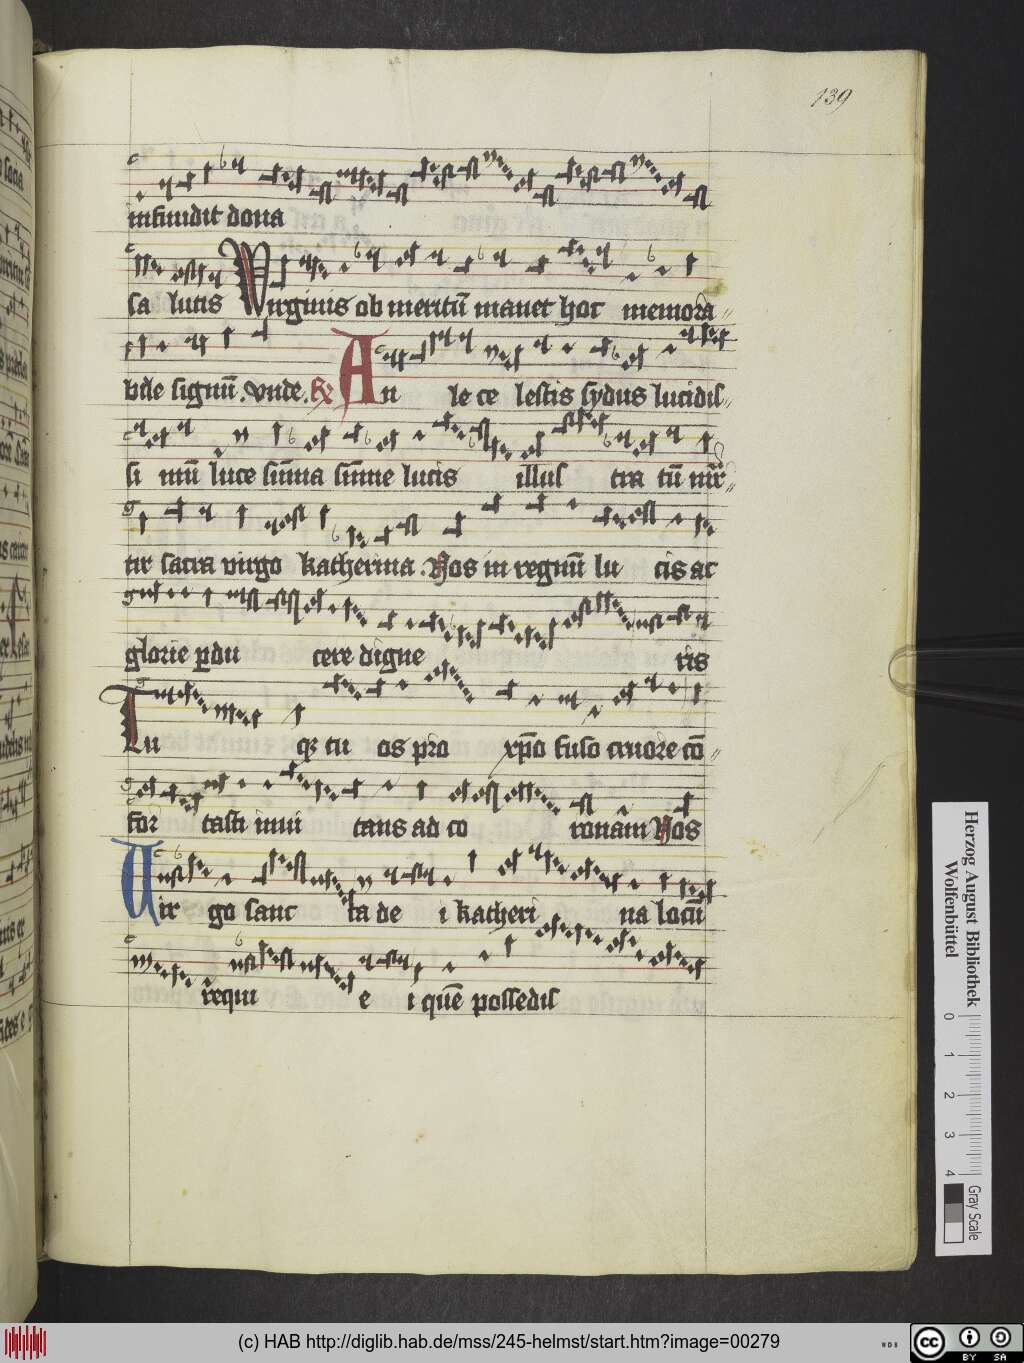 139
infundit dona
sa lutis Virginis ob meritū manet hoc memora〃
bile signū . vnde . R̷ An le ce lestis sydus lucidis〃
si mū luce sūma sūme lucis illus tra tū
tir sacra virgo katherina . Nos in regnū lu cis ac
glorie p̱du cere digne ris
Tu os pro xp̄o fuso cruore cō
for tasti inui tans ad co ronam Nos
Uir go sanc ta de i katheri na locū
requi e i quē possedis
Herzog August Bibliothek
Wolfenbüttel
0 1 2 3 4
Gray Scale
(c) HAB http://diglib.hab.de/mss/245-helmst/start.htm?image=00279
WDB
cc BY SA